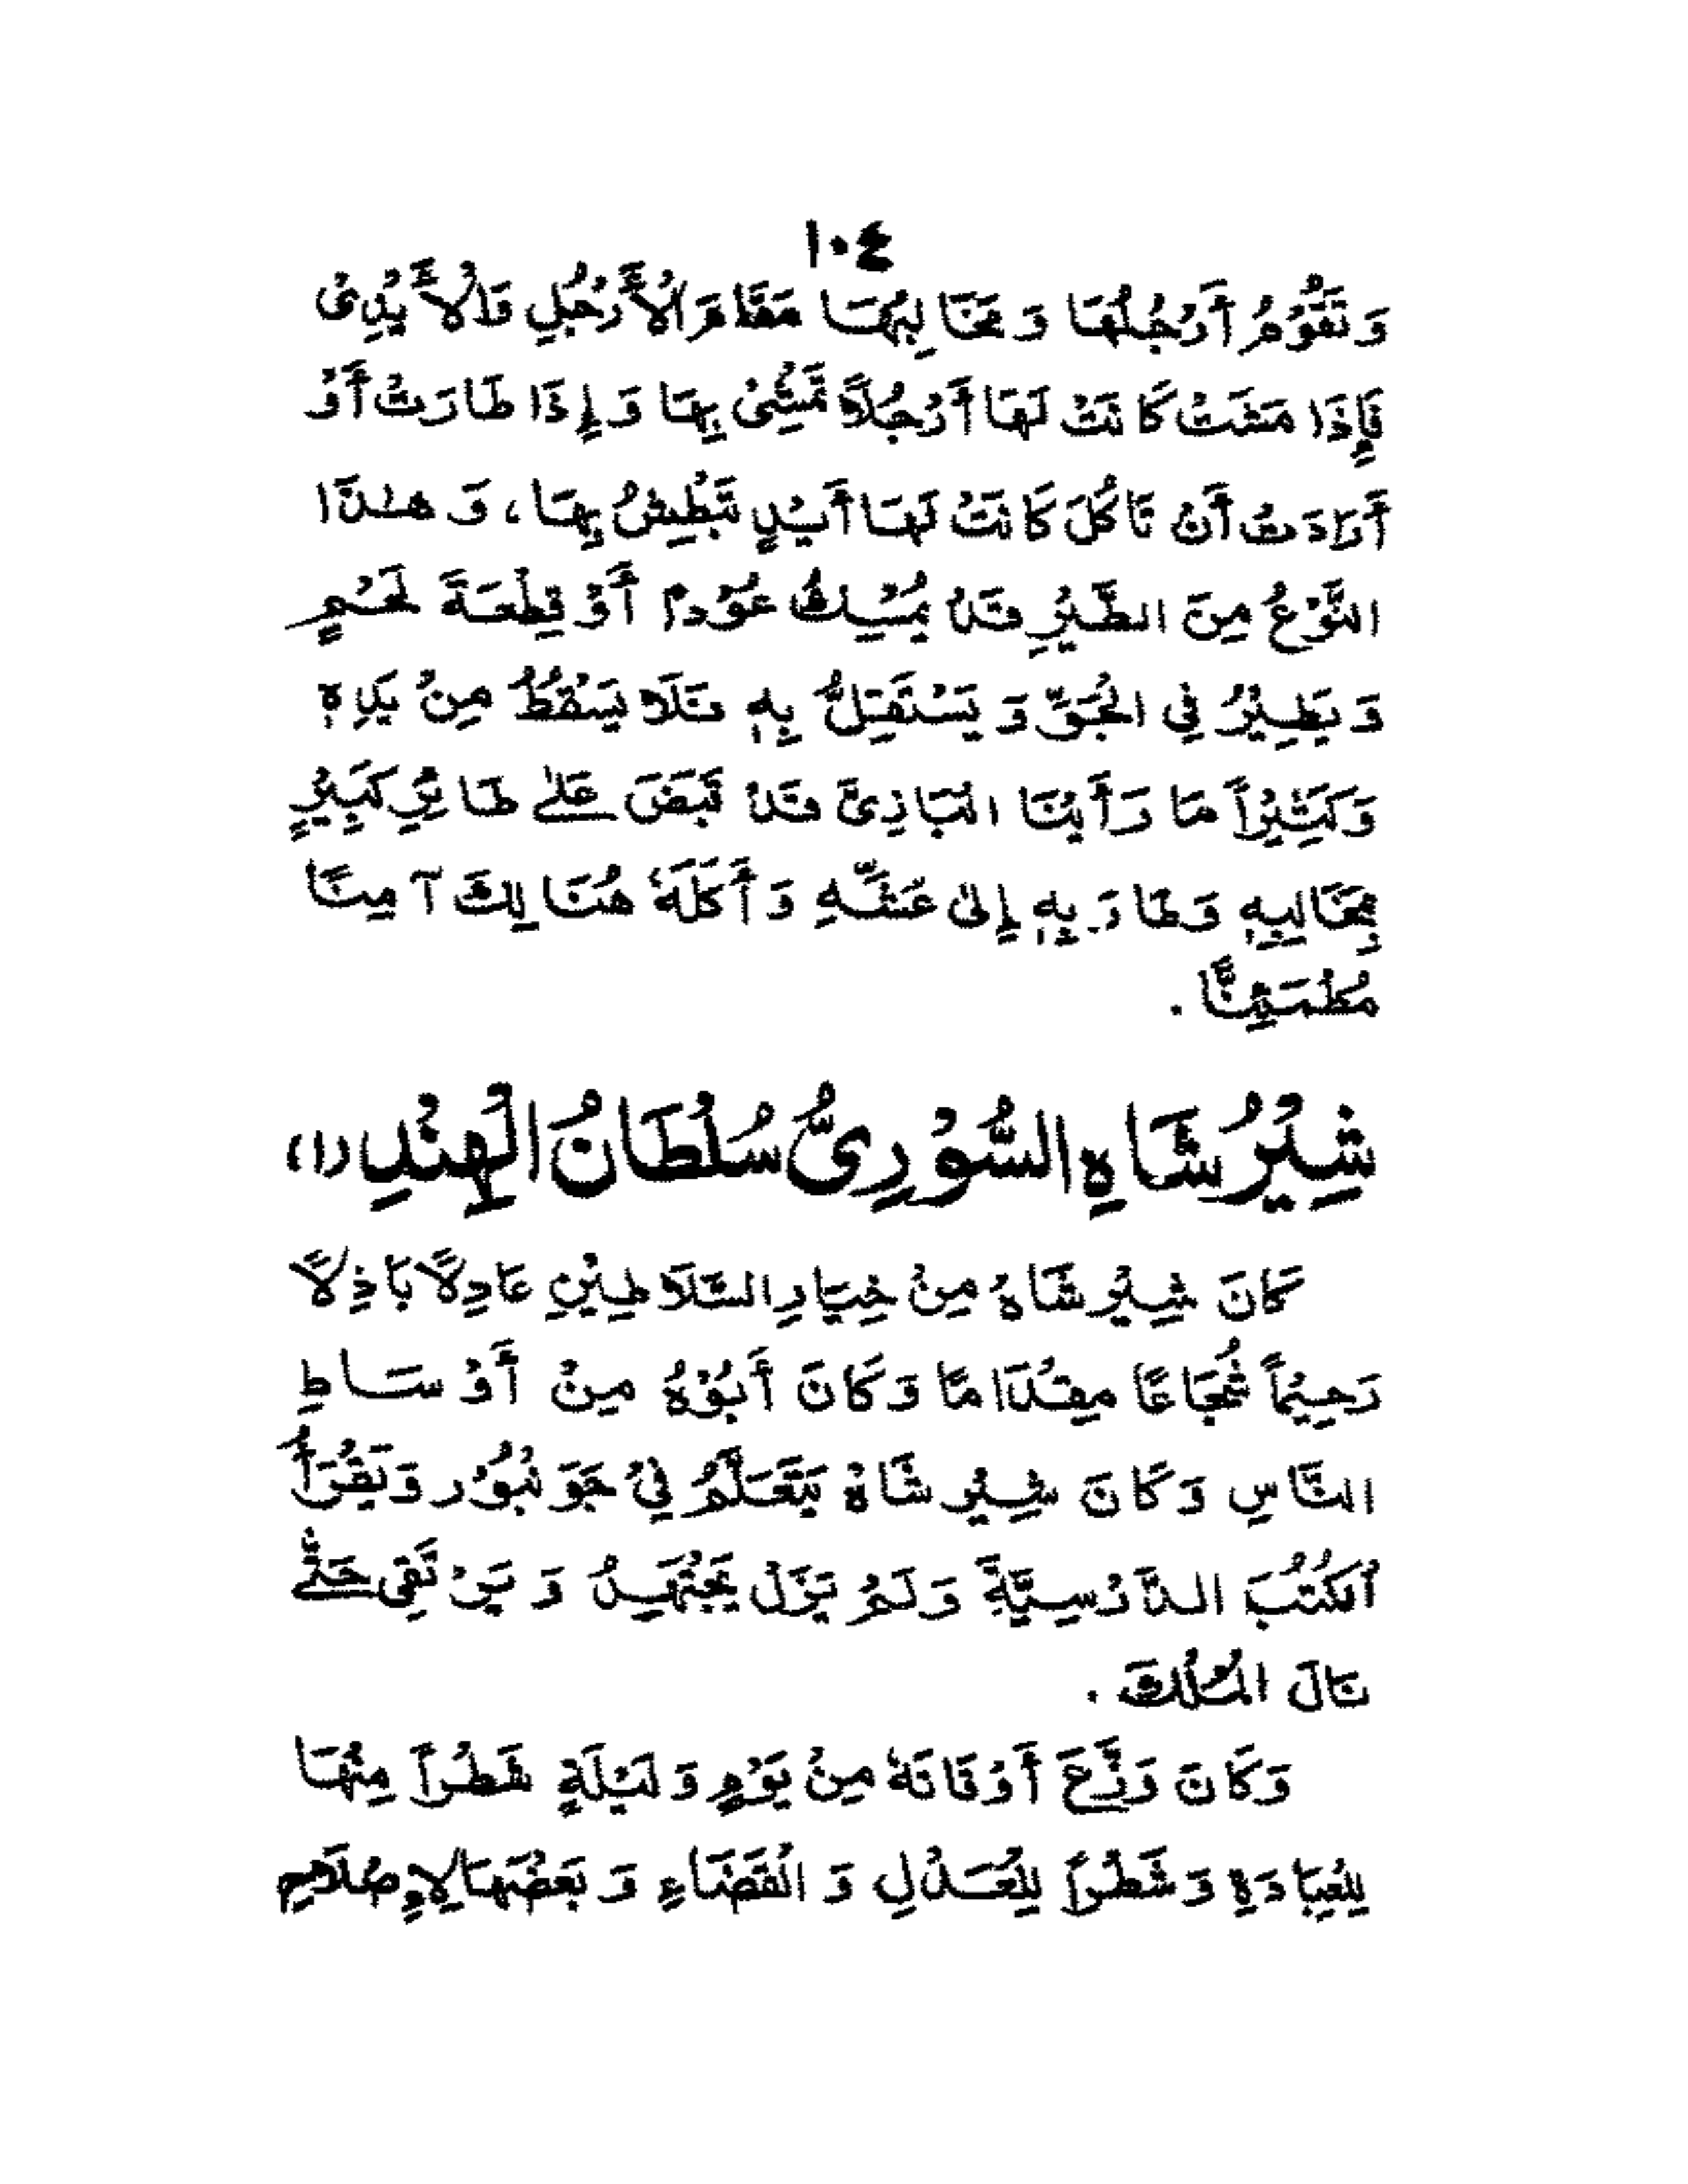 ١٠٤
وَتَقُوْمُ أَرْجُلُهَا وَمَخَالِبُهَا مَقَامَ الْأَرْجُلِ وَالْأَيْدِىْ
فَإِذَا مَشَتْ كَانَتْ لَهَا أَرْجُلاً تَمْشِىْ بِهَا وَإِذَا طَارَتْ أَوْ
أَرَادَتْ أَنْ تَاكُلَ كَانَتْ لَهَا أَيْدٍ تَبْطِشُ بِهَا، وَهٰذَا
النَّوْعُ مِنَ الطَّيْرِ قَدْ يُمْسِكُ عُوْدًا أَوْ قِطْعَةَ لَحْمٍ
وَيَطِيْرُ فِي الْجَوِّ وَيَسْتَقِلُّ بِهٖ فَلَا يَسْقُطُ مِنْ يَدِهٖ
وَكَثِيْراً مَا رَأَيْنَا الْبَازِىَّ قَدْ قَبَضَ عَلىٰ طَائِرٍ كَبِيْرٍ
بِمَخَالِبِهٖ وَطَارَ بِهٖ إِلىٰ عُشِّهِ وَأَكَلَهٗ هُنَالِكَ آمِنًا
مُطْمَئِنًّا .
شِيْرُ شَاهِ السُّوْرِىُّ سُلْطَانُ الْهِنْدِ (١)
كَانَ شِيْرُ شَاهُ مِنْ خِيَارِ السَّلَاطِيْنِ عَادِلًا بَاذِلًا
رَحِيْماً شُجَاعًا مِقْدَامًا وَكَانَ أَبُوْهُ مِنْ أَوْسَاطِ
النَّاسِ وَكَانَ شِيْر شَاهْ يَتَعَلَّمُ فِيْ جَوَنْبُوْر وَيَقْرَأُ
الْكُتُبَ الدَّرْسِيَّةَ وَلَمْ يَزَلْ يَجْتَهِدُ وَيَرْتَقِى حَتّٰى
نَالَ الْمُلْكَ .
وَكَانَ وَزَّعَ أَوْقَاتَهٗ مِنْ يَوْمٍ وَلَيْلَةٍ شَطْراً مِنْهَا
لِلْعِبَادَةِ وَشَطْراً لِلْعَدْلِ وَالْقَضَاءِ وَبَعْضَهَا لِإِصْلَاحِ